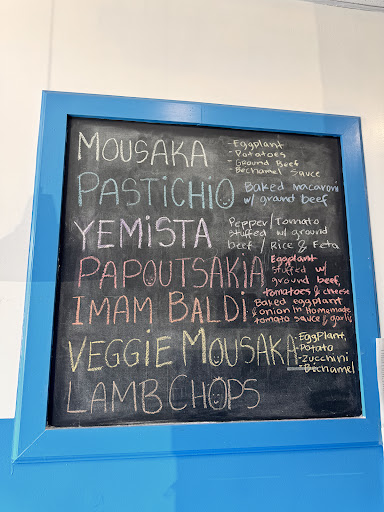 MOUSAKA
- Eggplant
- Potatoes
- Ground Beef
- Bechamel Sauce
PASTICHIO
Baked macaroni
w/ grand beef
YEMISTA
Pepper/Tomato
stuffed w/ ground
beef / Rice & Feta
PAPOUTSAKIA
Eggplant
stuffed w/
ground beef,
tomatoes & cheese
IMAM BALDI
Baked eggplant
& onion in Homemade
tomato sauce & garlic
VEGGIE MOUSAKA
- EggPlant,
- Potato
- Zucchini
- Bechamel
LAMB CHOPS